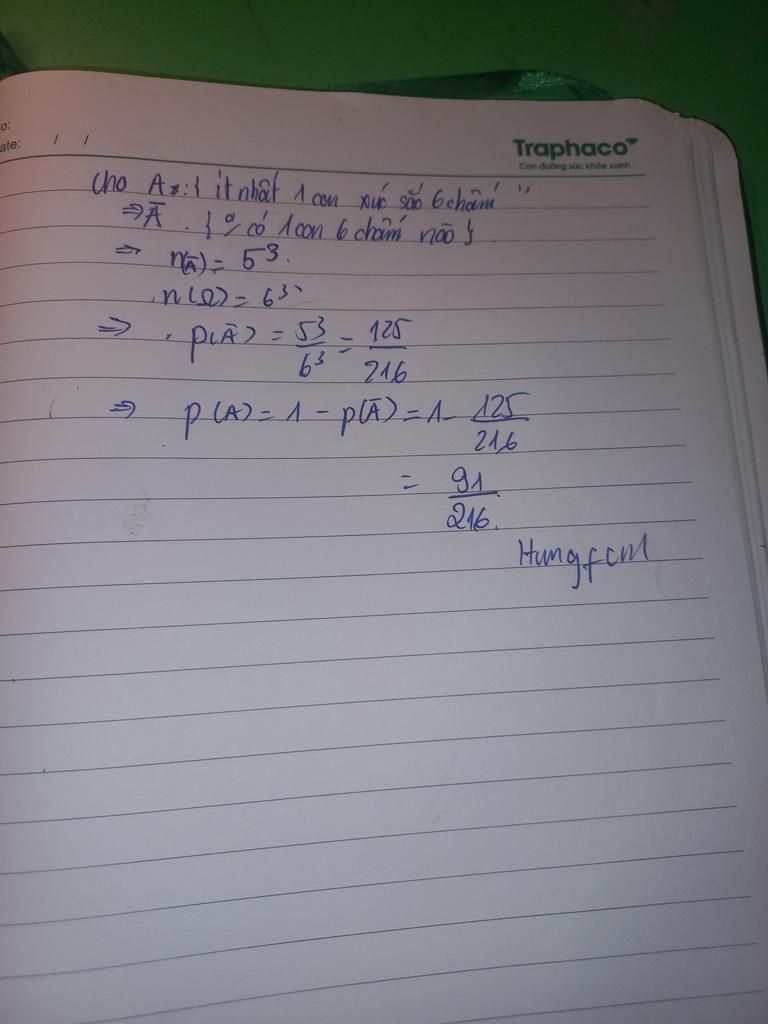 o:
ate: / /
Traphaco
Con đường sức khỏe xanh
Cho A : { ít nhất 1 con xúc sắc 6 chấm "
⇒ Ā . { % có 1 con 6 chấm nào } .
⇒ n(Ā) = 5³.
n(Ω) = 6³
⇒ . P(Ā) = 5³/6³ = 125/216
⇒ P(A) = 1 - P(Ā) = 1 - 125/216
= 91/216.
Hungfcm